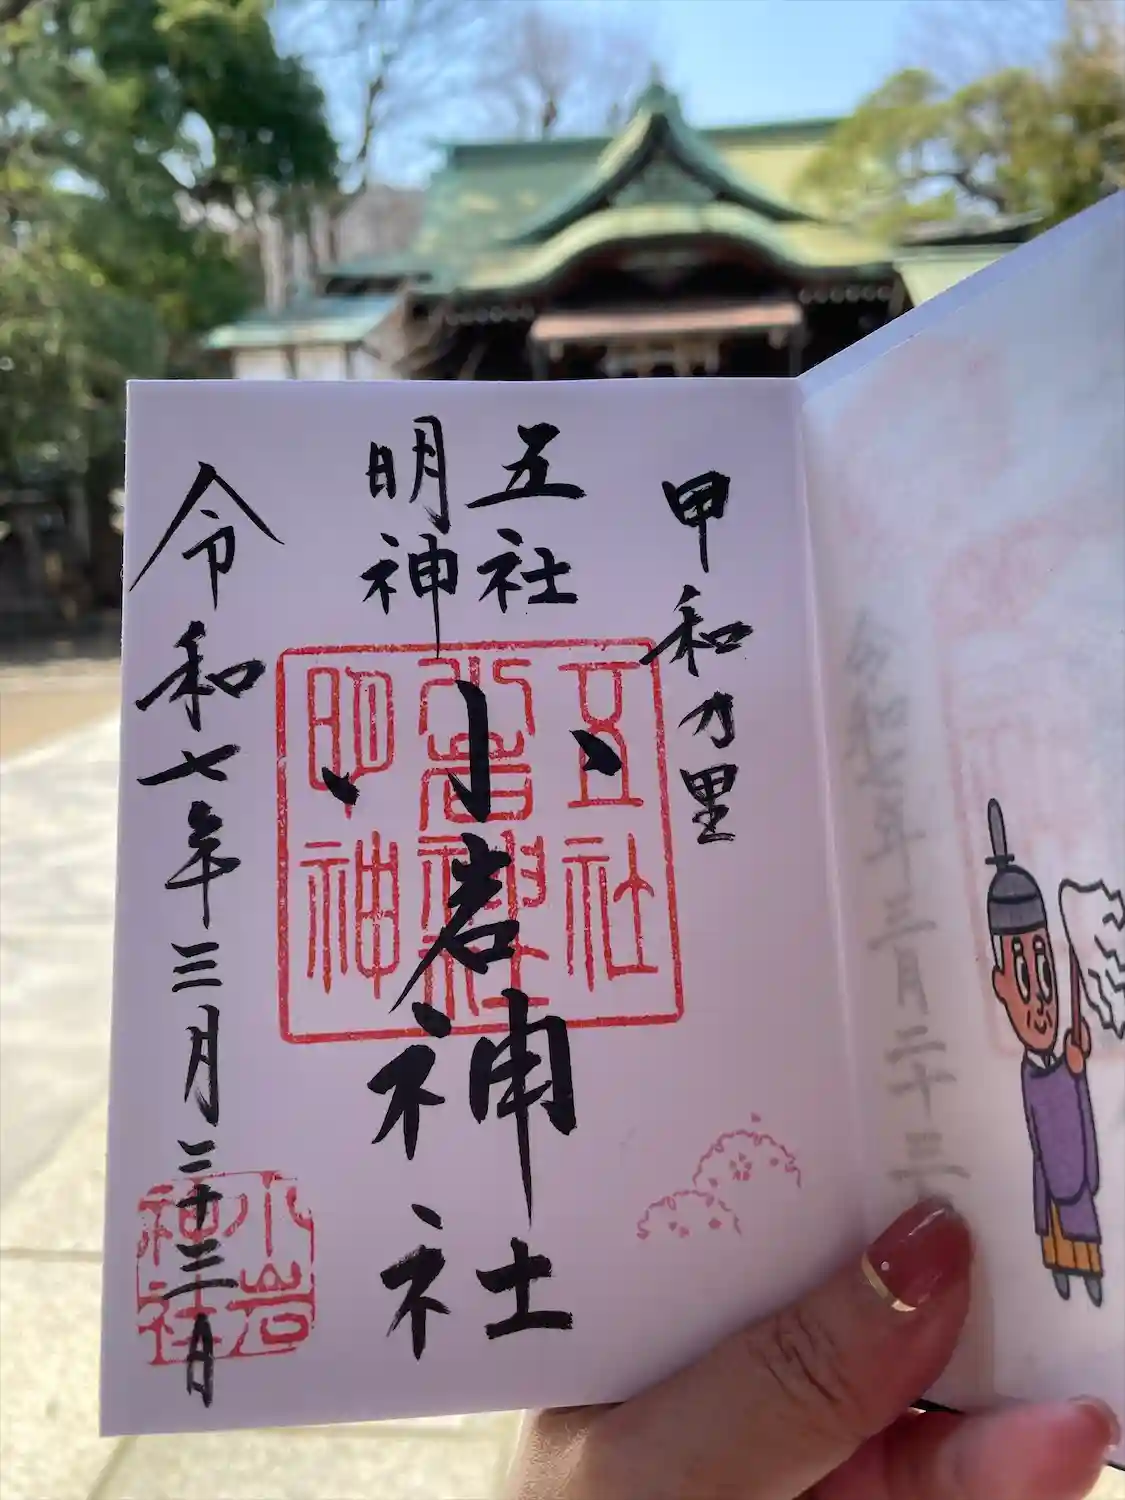 甲和乃里
五社
明神
小岩神社
令和七年三月二十三日
五社
小岩神社
明神
小岩
神社